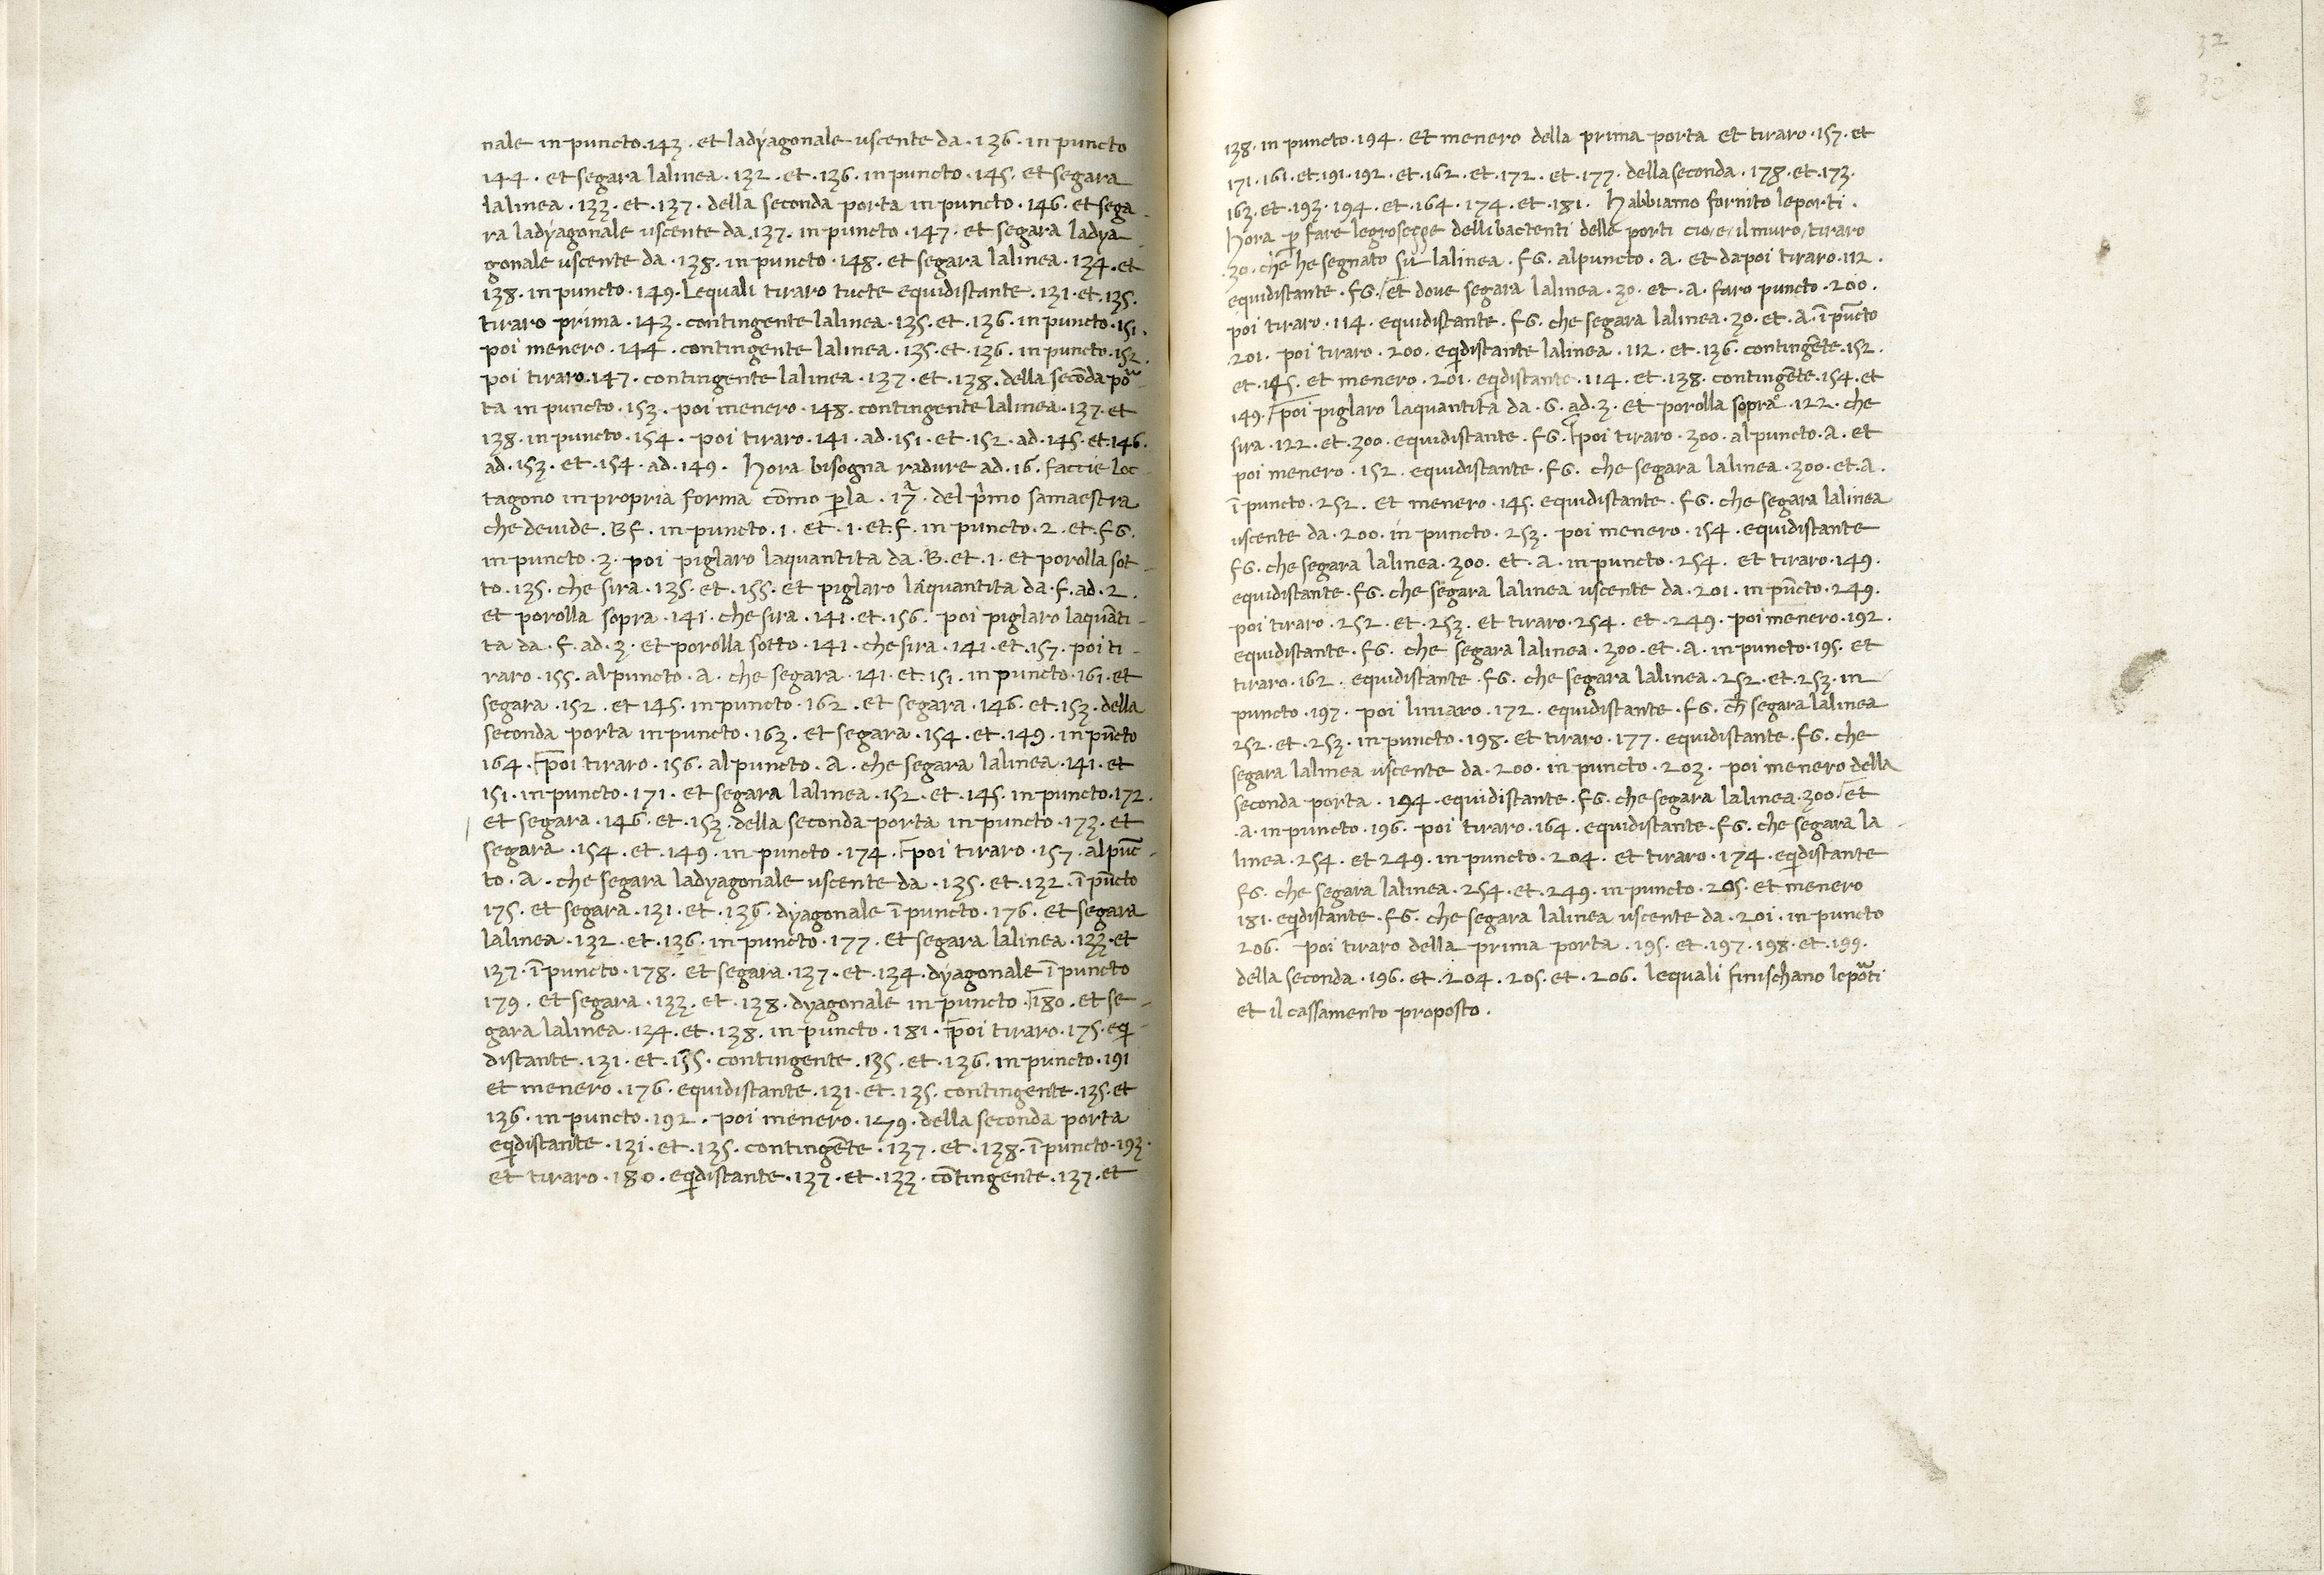 nale in puncto.143. et ladyagonale uscente da.136. in puncto
144. et segara lalinea.132. et.136. in puncto.145. et segara
lalinea.133. et.137. della seconda porta in puncto.146. et sega
ra ladyagonale uscente da.137. in puncto.147. et segara ladya
gonale uscente da.138. in puncto.148. et segara lalinea.134. et
138. in puncto.149. Lequali tiraro tucte equidistante.131. et.135.
tiraro prima.143. contingente lalinea.135. et.136. in puncto.151.
poi menero.144. contingente lalinea.135. et.136. in puncto.152.
poi tiraro.147. contingente lalinea.137. et.138. della secōda por
ta in puncto.153. poi menero.148. contingente lalinea.137. et
138. in puncto.154. poi tiraro.141. ad.151. et.152. ad.145. et.146.
ad.153. et.154. ad.149. hora bisogna radure ad.16. faccie loc-
tagono in propria forma cōmo p̱la.17ª. del p̄mo samaestra
che devide. Bf. in puncto.1. et.1. et.f. in puncto.2. et.fG.
in puncto.3. poi piglaro laquantita da.B. et.1. et porolla sot-
to.135. che sira.135. et.155. et piglaro laquantita da.f. ad.2.
et porolla sopra.141. che sira.141. et.156. poi piglaro laquāti-
ta da.f. ad.3. et porolla sotto.141. che sira.141. et.157. poi ti-
raro.155. alpuncto.A. che segara.141. et.151. in puncto.161. et
segara.152. et 145. in puncto.162. et segara.146. et.153. della
seconda porta in puncto.163. et segara.154. et.149. in pūcto
164. poi tiraro.156. alpuncto.A. che segara lalinea.141. et
151. in puncto.171. et segara lalinea.152. et.145. in puncto.172.
et segara.146. et.153. della seconda porta in puncto.173. et
segara.154. et.149. in puncto.174. poi tiraro.157. alpūc-
to.A. che segara ladyagonale uscente da.135. et.132. ī pūcto
175. et segara.131. et.136. dyagonale ī puncto.176. et segara
lalinea.132. et.136. in puncto.177. et segara lalinea.133. et
137. ī puncto.178. et segara.137. et.134. dyagonale ī puncto
179. et segara.133. et.138. dyagonale in puncto.180. et se-
gara lalinea.134. et.138. in puncto.181. poi tiraro.175. eqi-
distante.131. et.135. contingente.135. et.136. in puncto.191
et menero.176. equidistante.131. et.135. contingente.135. et
136. in puncto.192. poi menero.179. della seconda porta
eqidistante.131. et.135. contingēte.137. et.138. ī puncto.193.
et tiraro.180. eqidistante.137. et.133. cōtingente.137. et
138. in puncto.194. et menero della prima porta et tiraro.157. et
171.161. et.191.192. et.162. et.172. et.177. della seconda.178. et.173.
163. et.193.194. et.164.174. et.181. habbiamo fornito leporti.
hora p̱ fare legrosecçe dellibactenti delle porti cio/e/il muro/tiraro
.30. che he segnato su lalinea.fG. alpuncto.A. et dapoi tiraro.112.
equidistante.fG. et dove segara lalinea.30. et.A. faro puncto.200.
poi tiraro.114. equidistante.fG. che segara lalinea.30. et.A. ī pūcto
201. poi tiraro.200. eqidistante lalinea.112. et.136. contingēte.152.
et.145. et menero.201. eqidistante.114. et.138. contingēte.154. et
149. poi piglaro laquantita da.G. ad.3. et porolla sopra.122. che
sira.122. et.300. equidistante.fG. poi tiraro.300. alpuncto.A. et
poi menero.152. equidistante.fG. che segara lalinea.300. et.A.
ī puncto.252. et menero.145. equidistante.fG. che segara lalinea
uscente da.200. in puncto.253. poi menero.154. equidistante
fG. che segara lalinea.300. et.A. in puncto.254. et tiraro.149.
equidistante.fG. che segara lalinea uscente da.201. in pūcto.249.
poi tiraro.252. et.253. et tiraro.254. et.249. poi menero.192.
equidistante.fG. che segara lalinea.300. et.A. in puncto.195. et
tiraro.162. equidistante.fG. che segara lalinea.252. et.253. in
puncto.197. poi liniaro.172. equidistante.fG. ch̄ segara lalinea
252. et.253. in puncto.198. et tiraro.177. equidistante.fG. che
segara lalinea uscente da.200. in puncto.203. poi menero della
seconda porta.194. equidistante.fG. che segara lalinea.300. et
.A. in puncto.196. poi tiraro.164. equidistante.fG. che segara la-
linea.254. et 249. in puncto.204. et tiraro.174. eqidistante
fG. che segara lalinea.254. et.249. in puncto.205. et menero
181. eqidistante.fG. che segara lalinea uscente da.201. in puncto
206. poi tiraro della prima porta.195. et.197.198. et.199.
della seconda.196. et.204.205. et.206. lequali finischano leporti
et il cassamento proposto.
32